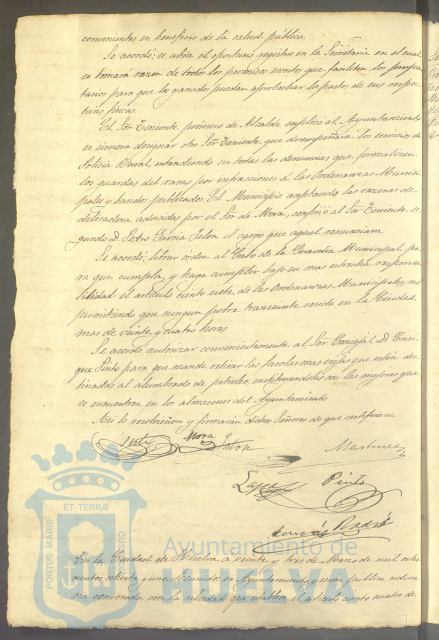 convenientes en beneficio de la salud pública.
Se acordó: se abra el oportuno registro en la Secretaria en el cual
se tomará razon de todos los permisos escritos que faciliten los propie-
tarios para que los ganados puedan aprovechar los pastos de sus respec-
tivas fincas.
El Sor Teniente primero de Alcalde suplicó al Ayuntamiento
se sirviera designar otro Sor Teniente, que desempeñara los servicios de
Policía Rural, entendiendo en todas las denuncias que formalicen
los guardas del ramo por infracciones á las Ordenanzas Munici-
pales y bandos publicados. El Municipio aceptando las razones de
delicadeza aducidas por el Sor de Mora, confirió al Sor Teniente se-
gundo D. Pedro Garcia Jalon el cargo que aquel renunciara
Se acordó, librar orden al Cabo de la Guardia Municipal pa-
ra que cumpla, y haga cumplir bajo su mas estrecha responsa-
bilidad el artículo ciento siete de las Ordenanzas Municipales, no
permitiendo que ningun pobre transeunte resida en la Ciudad
mas de veinte y cuatro horas
Se acordó autorizar convenientemente al Sor Concejal D. Enri-
que Pinto para que mande retirar las faroles mas viejas que estén des-
tinadas al alumbrado de petroleo, sustituyendolas con las mejores que
se encuentren en los almacenes del Ayuntamiento
Asi lo resolvieron y firmarán dichos Señores de que certifico=
Mora
Jalon
Martinez
Pinto
ET TERRÆ
PORTUS MARIS
Ayuntamiento de
HUELVA
En la Ciudad de Huelva a veinte y tres de Marzo de mil ocho-
cientos ochenta y uno Reunidos en Ayuntamiento y sesion publica ordina-
ria convocada con la publicidad que establece el articulo ciento cuatro de